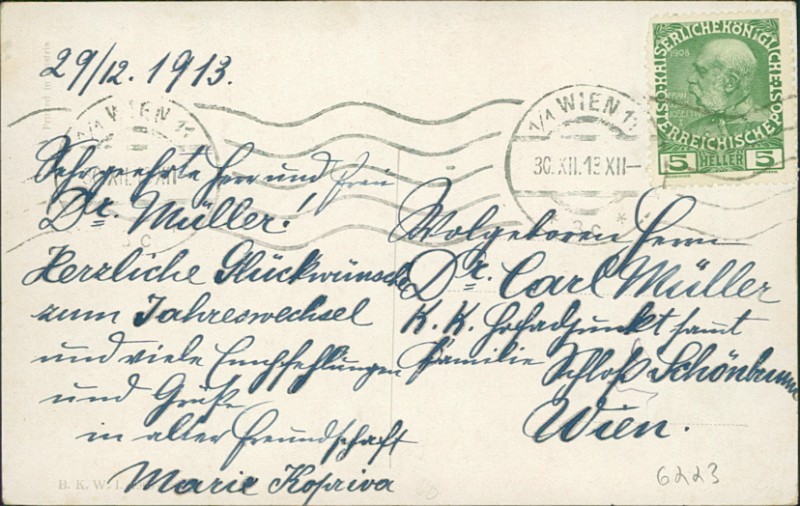 29/12. 1913.
Sehrgeehrte Herr und Frau
Dr. Müller!
Herzliche Glückwünsche
zum Jahreswechsel
und viele Empfehlungen
und Grüße
in alter Freundschaft
Marie Kopriva
Wolgeboren Herrn
Dr. Carl Müller
K. K. Hofadjunkt samt
Familie Schloß Schönbrunn
Wien.
KAISERLICHE KÖNIGLICHE
ÖSTERREICHISCHE POST
1908
5 HELLER 5
1/1 WIEN 1
30.XII.13 XII-
3c *
1/1 WIEN 1
3c
Printed in Austria
B. K. W. I.
6223